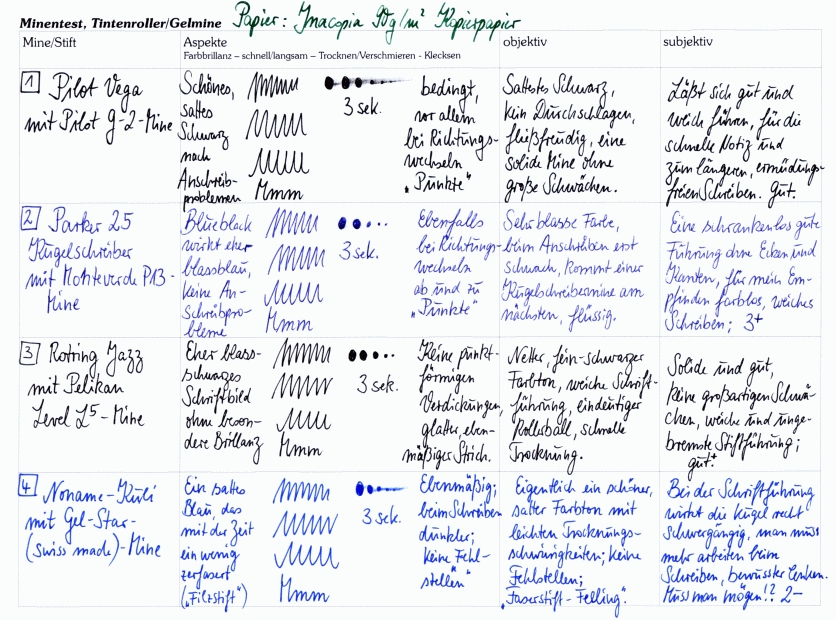 Minentest, Tintenroller/Gelmine
Papier: Inacopia 90g/m² Kopierpapier
Mine/Stift
Aspekte
Farbbrillanz – schnell/langsam – Trocknen/Verschmieren - Klecksen
objektiv
subjektiv
1 Pilot Vega
mit Pilot G-2-Mine
Schönes,
sattes
Schwarz
nach
Anschreib-
problemen
Mmm
3 sek.
bedingt,
vor allem
bei Richtungs-
wechseln
„Punkte“
Sattestes Schwarz,
kein Durchschlagen,
fließfreudig, eine
solide Mine ohne
große Schwächen.
Läßt sich gut und
weich führen, für die
schnelle Notiz und
zum längeren, ermüdungs-
freien Schreiben. Gut.
2 Parker 25
Kugelschreiber
mit Monteverde P13-
Mine
Blueblack
wirkt eher
blassblau,
keine An-
schreibpro-
bleme
Mmm
3 sek.
Ebenfalls
bei Richtungs-
wechseln
ab und zu
„Punkte“
Sehr blasse Farbe,
beim Anschreiben erst
schwach, kommt einer
Kugelschreibermine am
nächsten, flüssig.
Eine schrankenlos gute
Führung ohne Ecken und
Kanten, für mein Em-
pfinden farblos, weiches
Schreiben; 3+
3 Rotring Jazz
mit Pelikan
Level L5-Mine
Eher blass-
schwarzes
Schriftbild
ohne beson-
dere Brillanz
Mmm
3 sek.
Keine punkt-
förmigen
Verdickungen,
glatter, eben-
mäßiger Strich.
Netter, fein-schwarzer
Farbton, weiche Schrift-
führung, eindeutiger
Rollerball, schnelle
Trocknung.
Solide und gut,
keine großartigen Schwä-
chen, weiche und unge-
bremste Stiftführung;
gut+
4 Noname-Kuli
mit Gel-Star-
(swiss made)-Mine
Ein sattes
Blau, das
mit der Zeit
ein wenig
zerfasert
(„Filzstift“)
Mmm
3 sek.
Ebenmäßig;
beim Schreiben
dunkler;
keine Fehl-
stellen“
Eigentlich ein schöner,
satter Farbton mit
leichten Trocknungs-
schwierigkeiten; keine
Fehlstellen;
„Faserstift-Feeling“
Bei der Schriftführung
wirkt die Kugel recht
schwergängig, man muss
mehr arbeiten beim
Schreiben, bewusster lenken.
Muss man mögen!? 2-